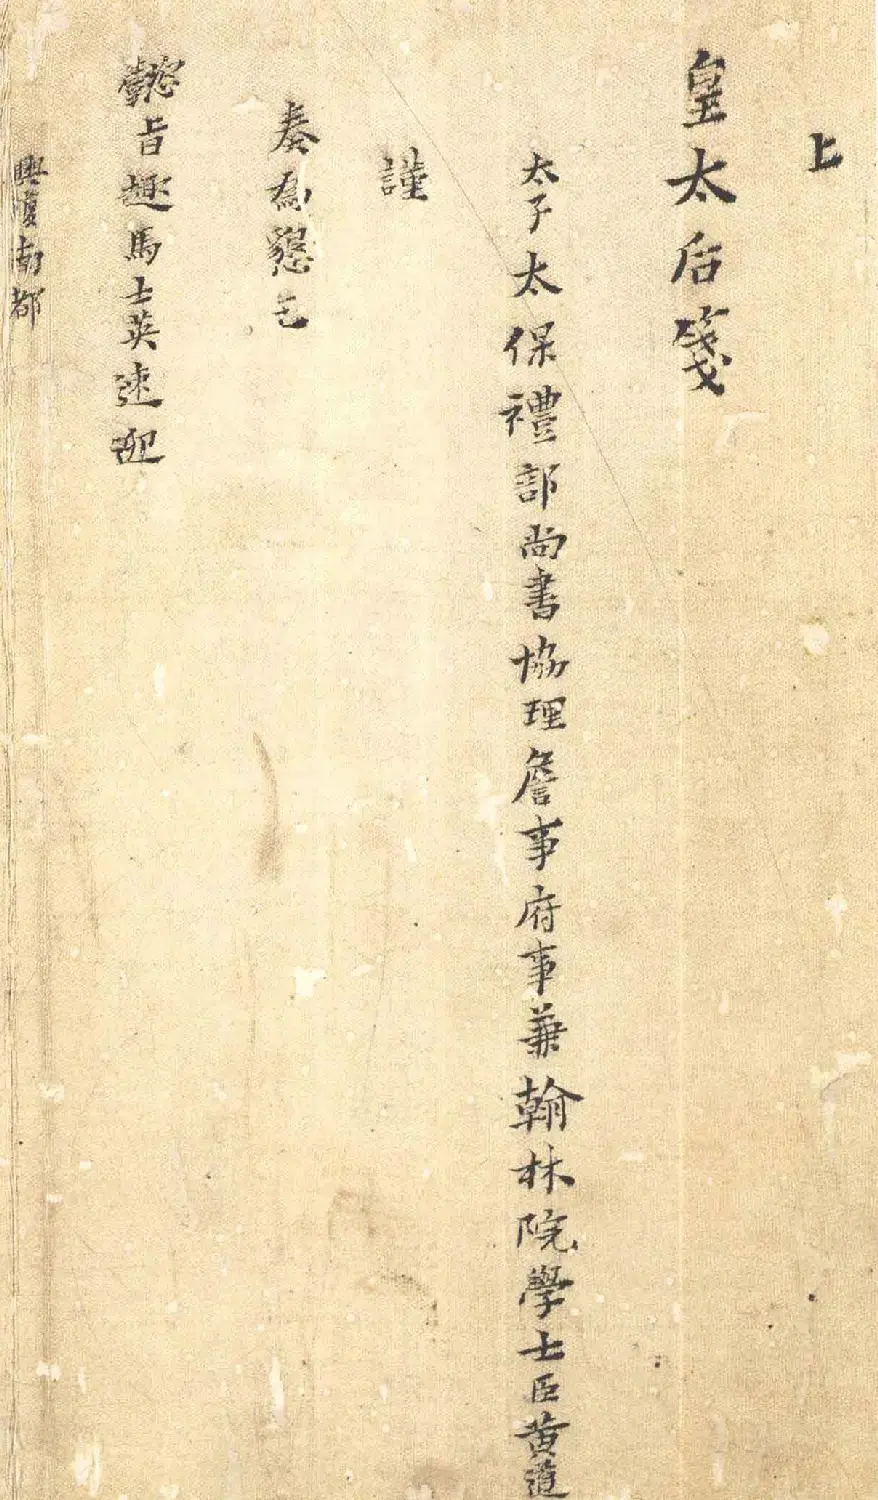 上
皇太后箋
太子太保禮部尚書協理詹事府事兼翰林院學士臣黄道
謹
奏為懇乞
懿旨趣馬士英速迎
南都